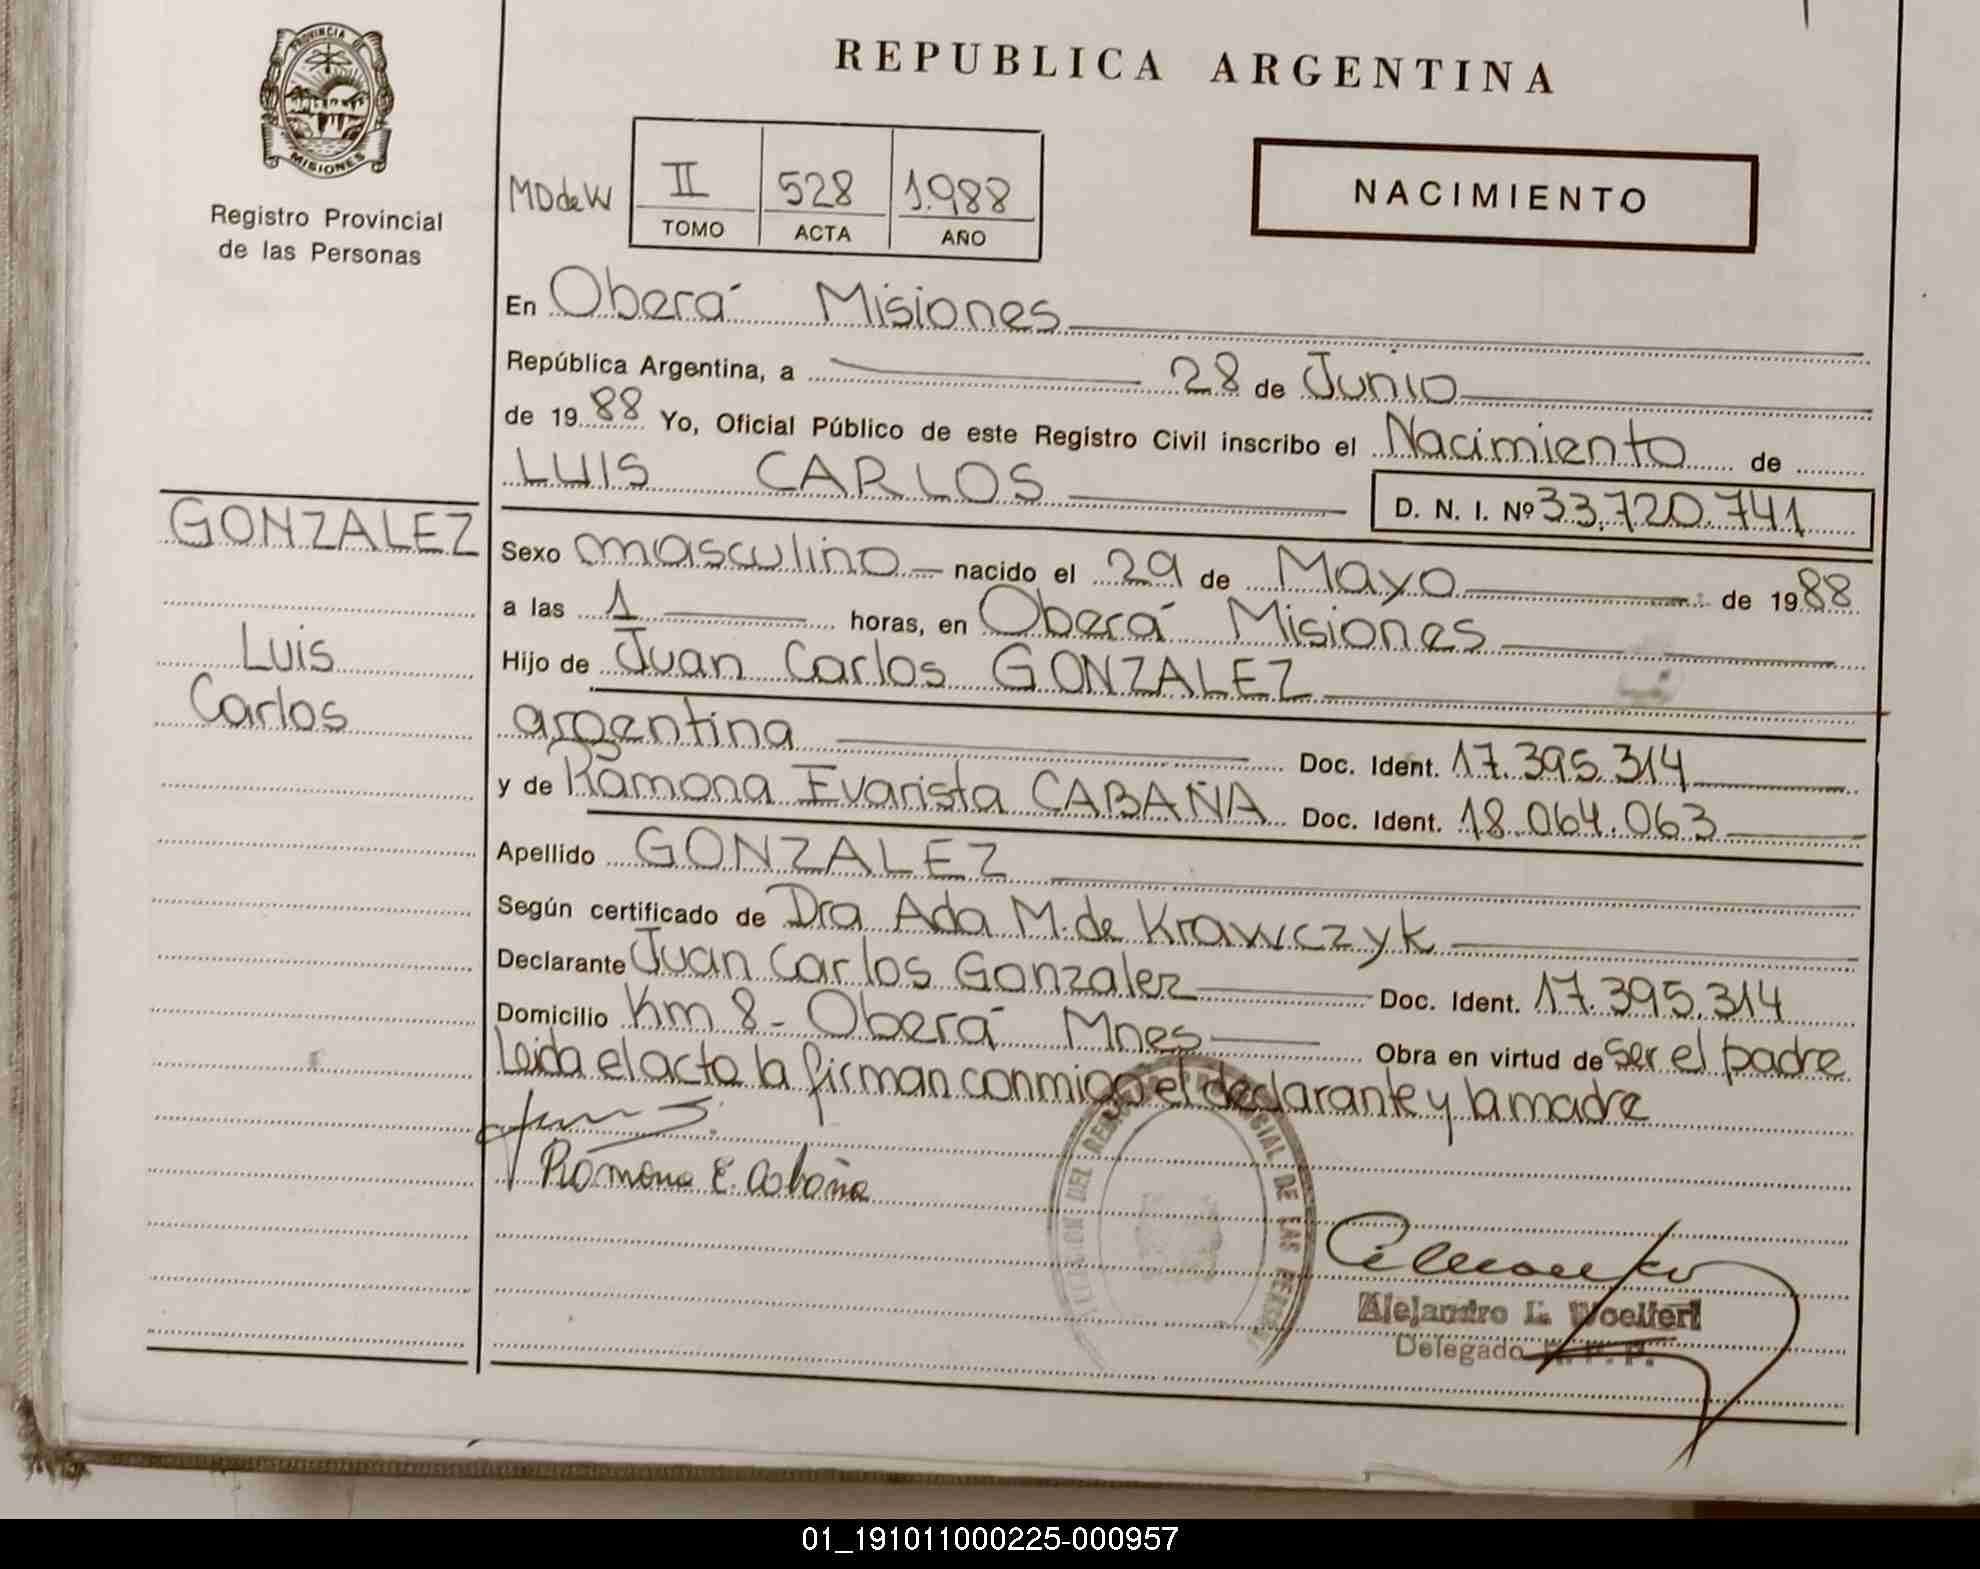 PROVINCIA DE
MISIONES
Registro Provincial
de las Personas
REPUBLICA ARGENTINA
MDdeW
II 528 1.988
TOMO ACTA AÑO
NACIMIENTO
En Oberá Misiones
República Argentina, a 28 de Junio
de 1988 Yo, Oficial Público de este Registro Civil inscribo el Nacimiento de
LUIS CARLOS
D. N. I. Nº 33.720.741
GONZALEZ
Luis
Carlos
Sexo masculino nacido el 29 de Mayo de 1988
a las 1 horas, en Oberá Misiones
Hijo de Juan Carlos GONZALEZ
argentina Doc. Ident. 17.395.314
y de Ramona Evarista CABAÑA Doc. Ident. 18.064.063
Apellido GONZALEZ
Según certificado de Dra Ada M. de Krawczyk
Declarante Juan Carlos Gonzalez Doc. Ident. 17.395.314
Domicilio Km 8 - Oberá Mnes Obra en virtud de ser el padre
Leida el acta la firman conmigo el declarante y la madre
Ramona E. Cabaña
DEL CIAL DE LAS
Alejandro L. Woelfert
Delegado R. P. P.
01_191011000225-000957